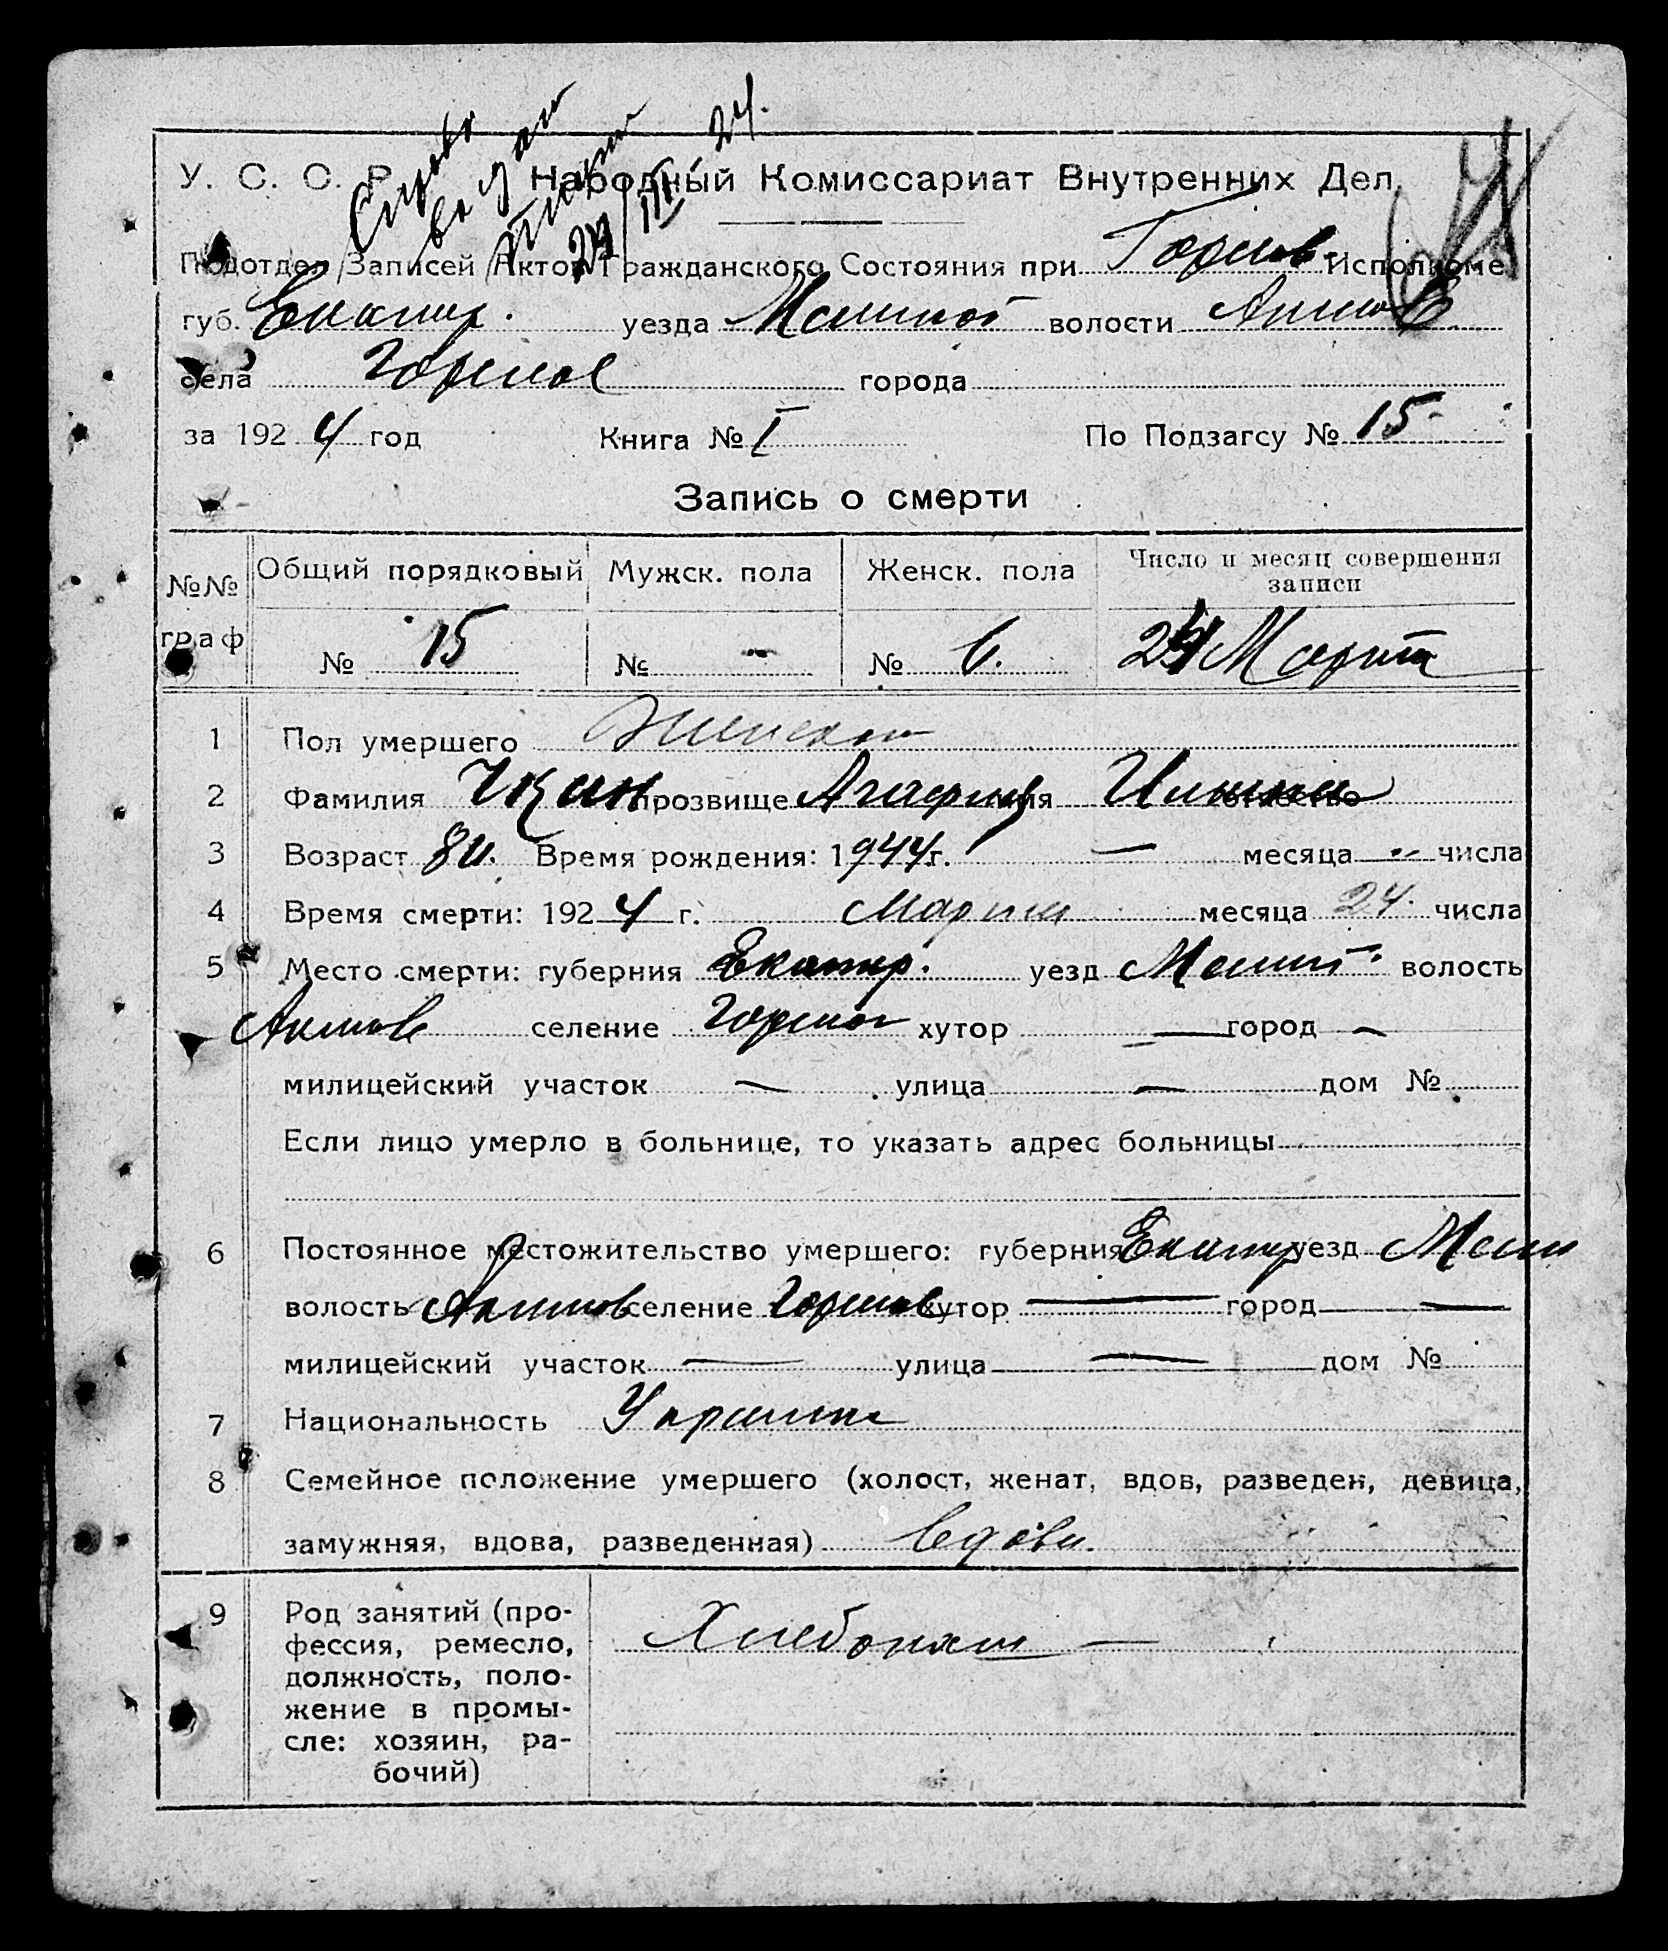 У. С. С. Р. Народный Комиссариат Внутренних Дел.
24/III 24.
Подотдел Записей Актов Гражданского Состояния при Горелов. Исполкоме
губ. Екатер. уезда Мелит волости
села Горелое города
за 1924 год Книга № I По Подзагсу № 15
Запись о смерти
№№ граф Общий порядковый Мужск. пола Женск. пола Число и месяц совершения записи
№ 15 № - № 6. 24 Марта
1 Пол умершего Женская
2 Фамилия прозвище Агафия имя отчество
3 Возраст 80. Время рождения: 1944 г. — месяца - числа
4 Время смерти: 1924 г. Марта месяца 24 числа
5 Место смерти: губерния Екатер. уезд Мелит. волость
Акимов селение Горелое хутор — город —
милицейский участок — улица — дом №
Если лицо умерло в больнице, то указать адрес больницы
6 Постоянное местожительство умершего: губерния Екатер уезд Мели
волость Акимов селение Горелов хутор — город —
милицейский участок — улица — дом №
7 Национальность Украинк
8 Семейное положение умершего (холост, женат, вдов, разведен, девица,
замужняя, вдова, разведенная) вдова.
9 Род занятий (про-
фессия, ремесло,
должность, поло-
жение в промы-
сле: хозяин, ра-
бочий)
Хлебопаш —